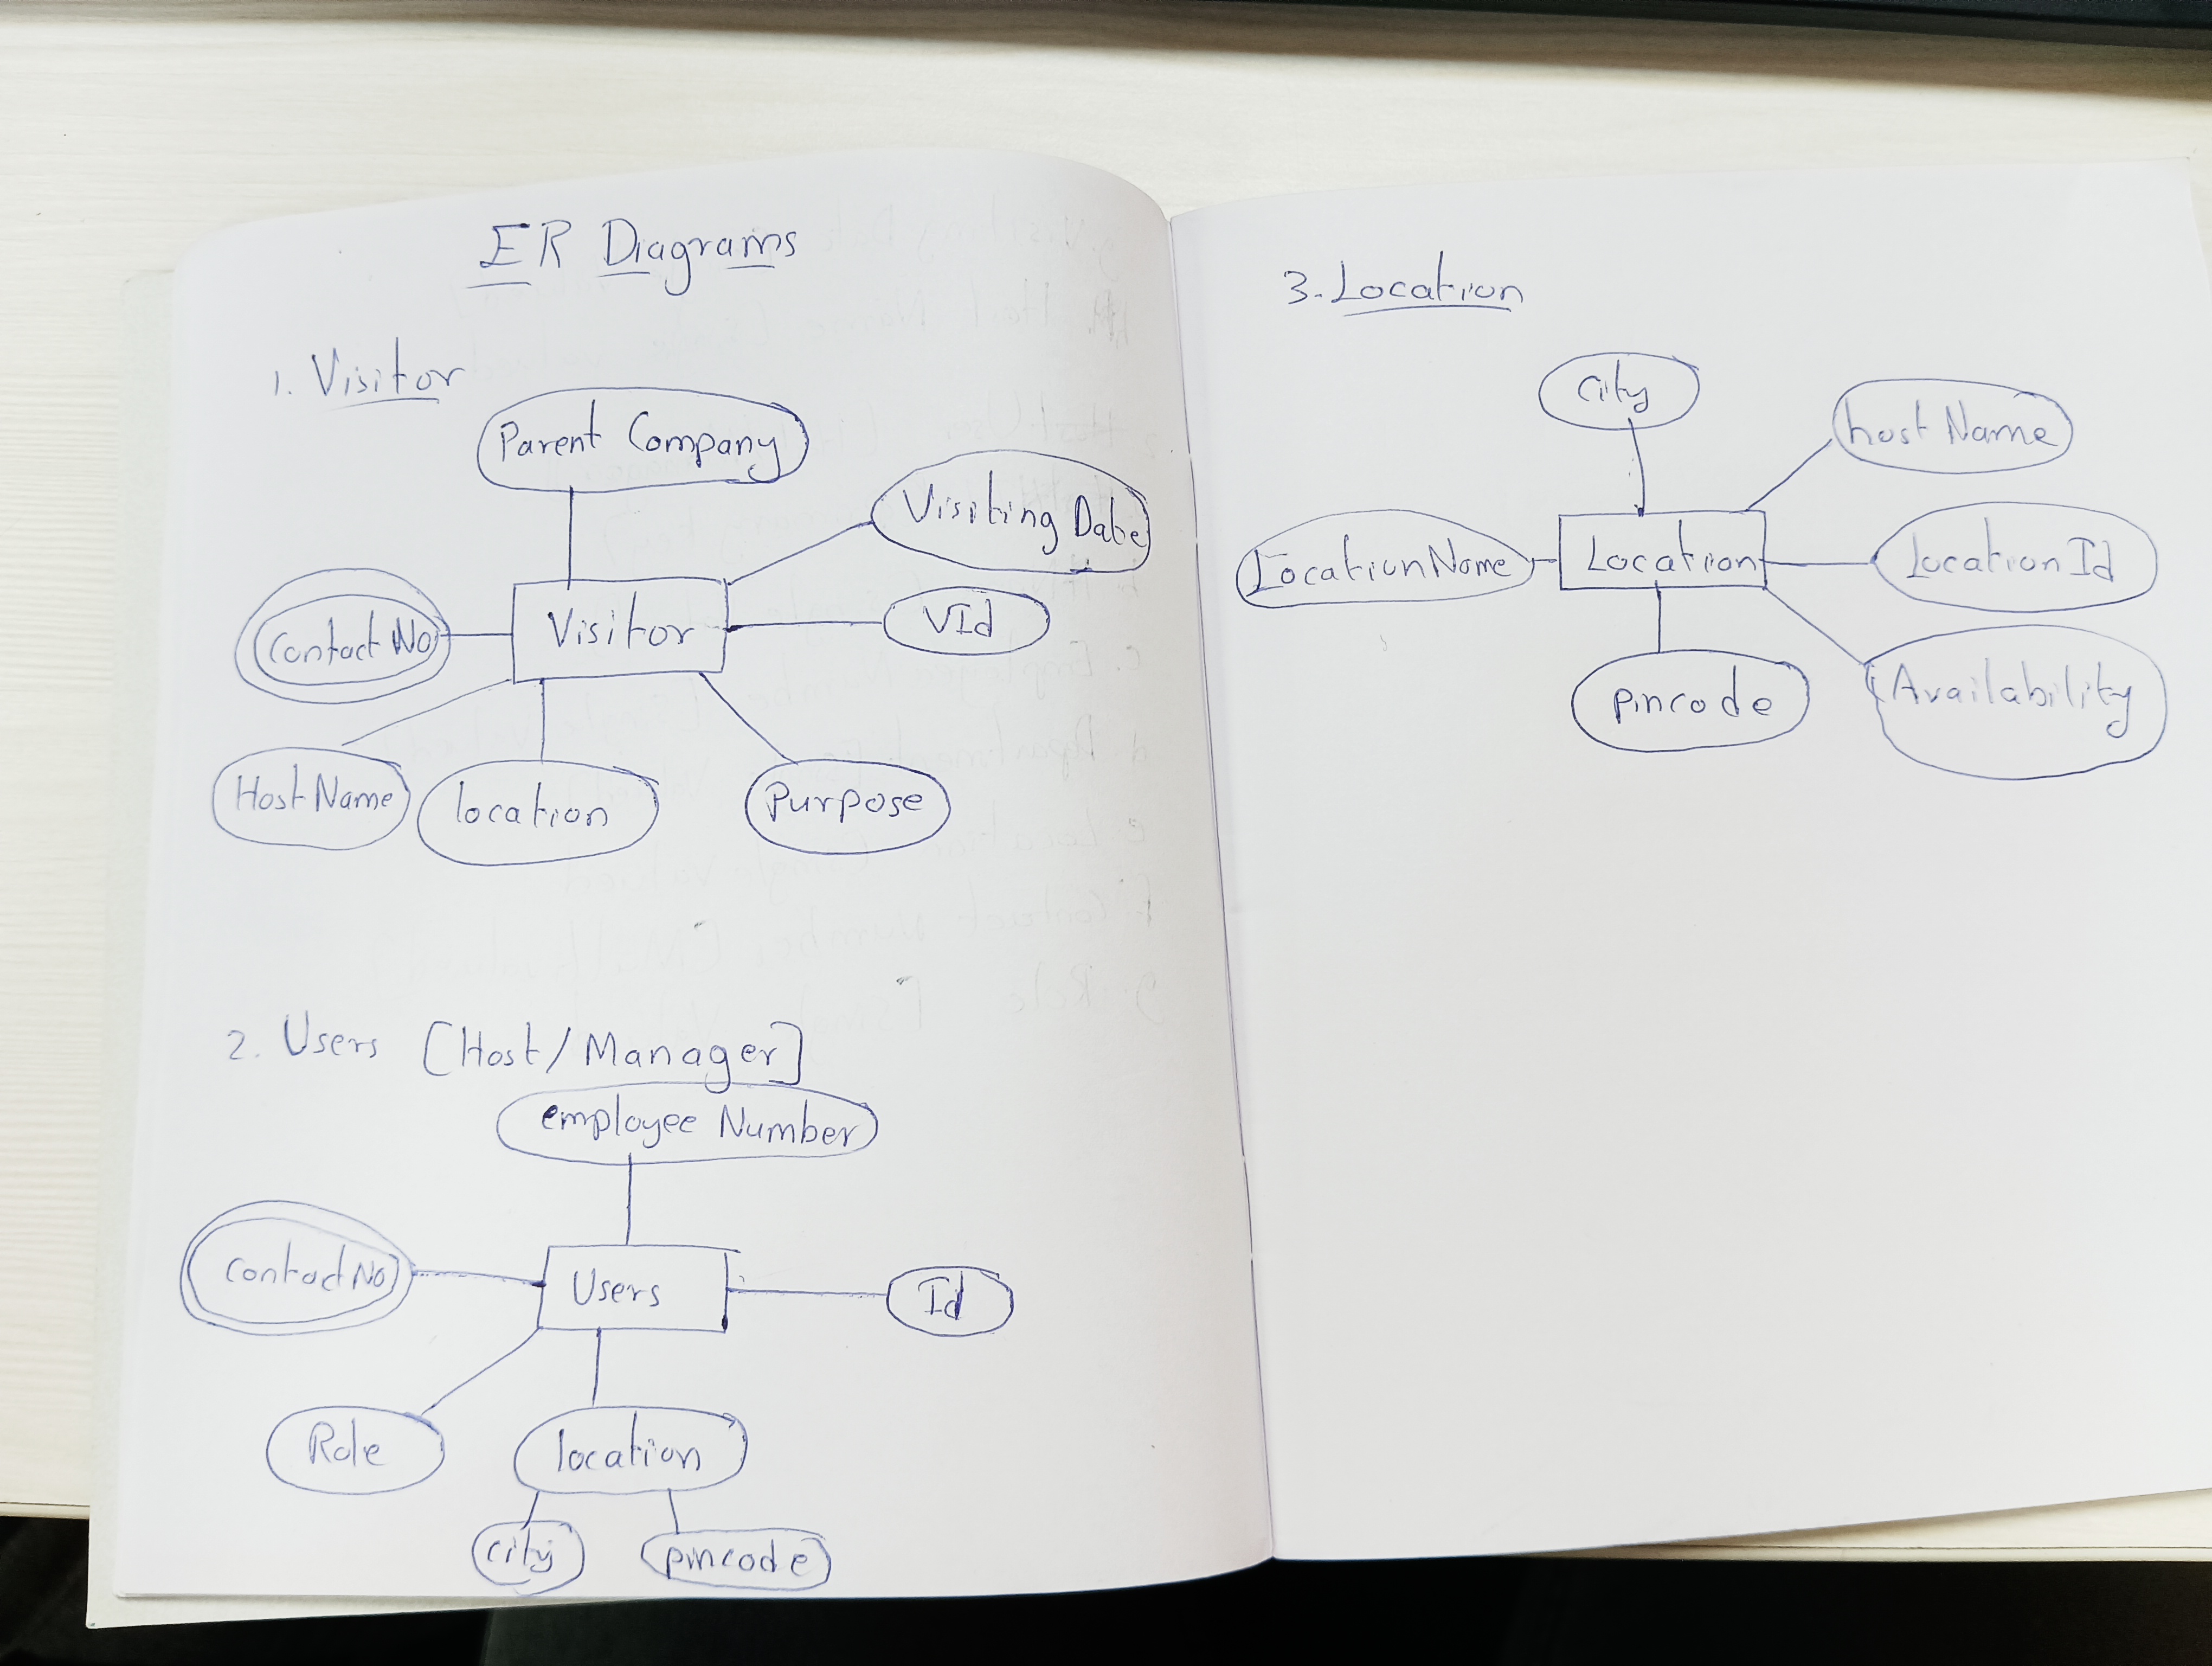 ER Diagrams
1. Visitor
Parent Company
Visiting Date
Contact No
Visitor
VId
Host Name
location
Purpose
2. Users [Host/Manager]
employee Number
contact No
Users
Id
Role
location
city
pincode
3. Location
city
host Name
Location Name
Location
Location Id
pincode
Availability